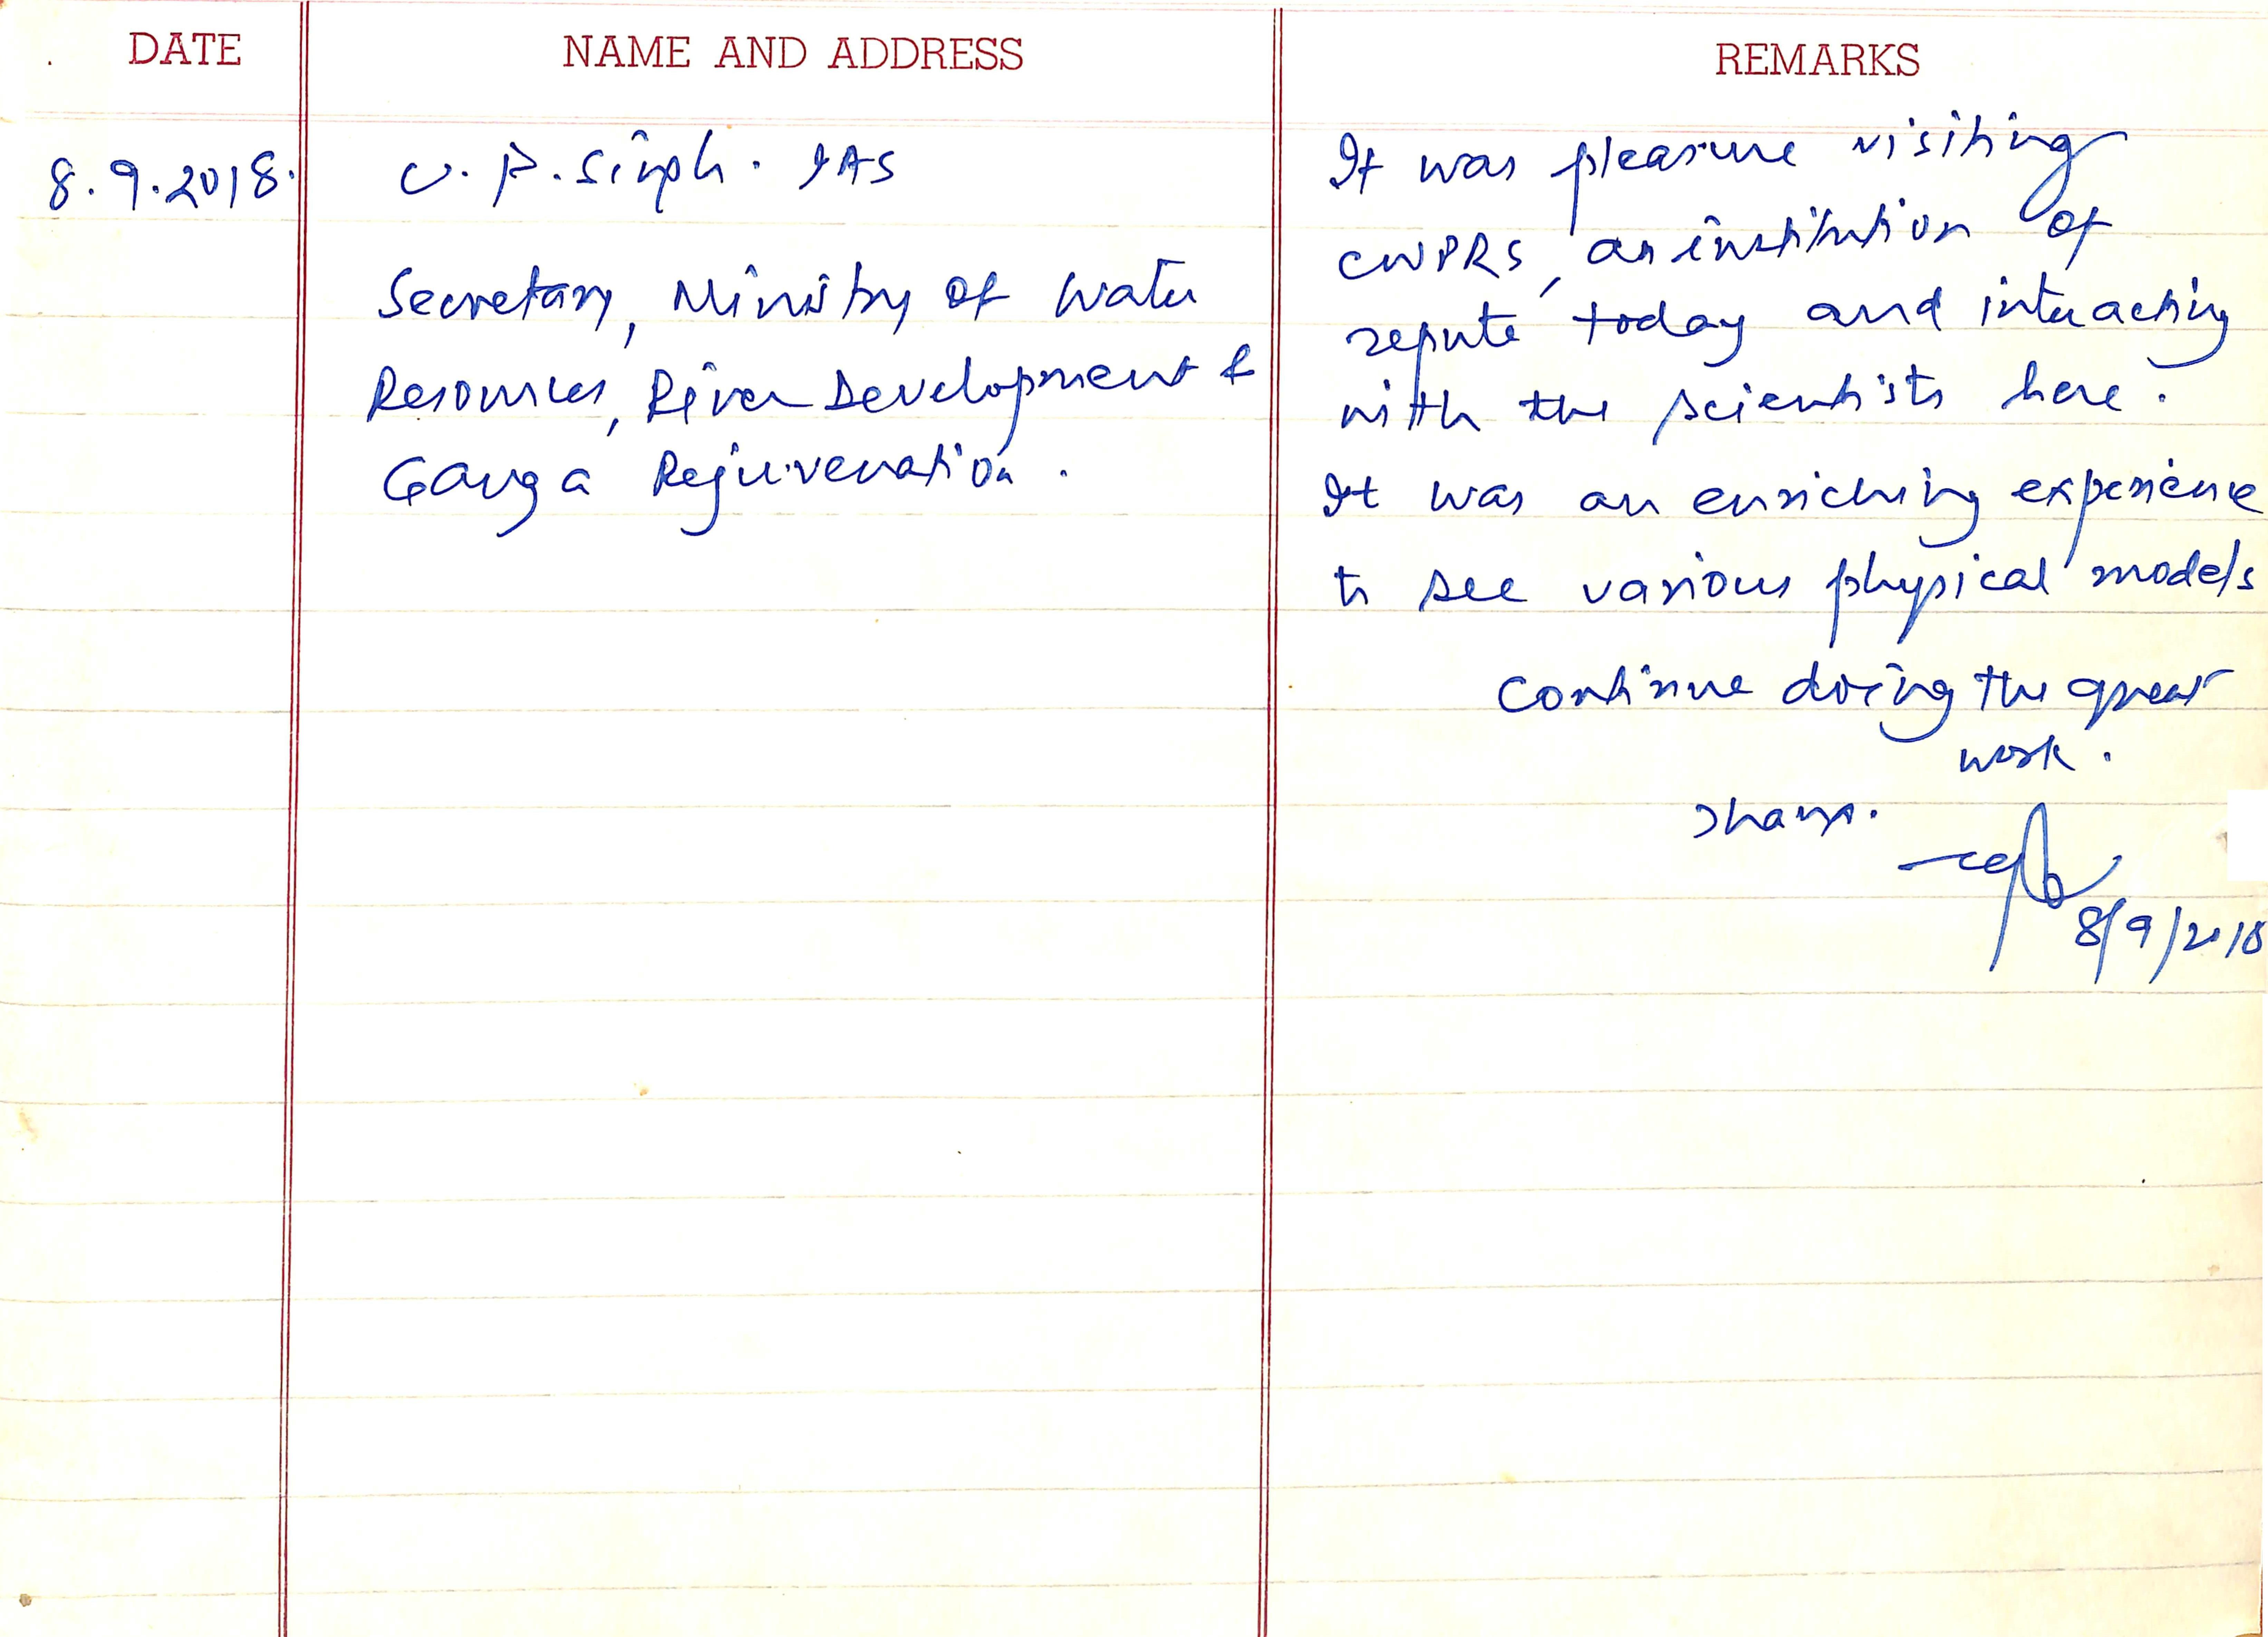 DATE
NAME AND ADDRESS
REMARKS
8.9.2018.
U. P. Singh. IAS
Secretary, Ministry of Water
Resources, River Development &
Ganga Rejuvenation.
It was pleasure visiting
CWPRS, an institution of
repute today and interacting
with the scientists here.
It was an enriching experience
to see various physical models
Continue doing the great
work.
8/9/2018